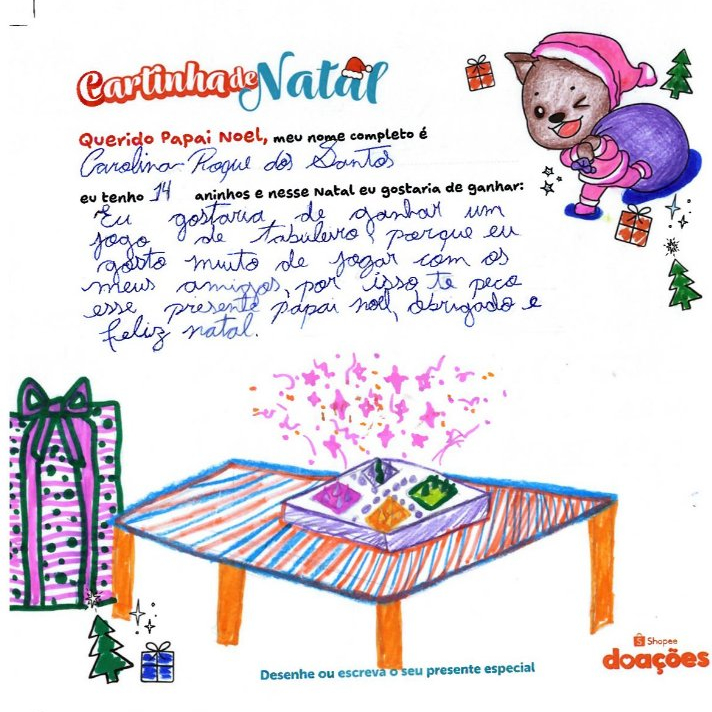 Cartinha de Natal
Querido Papai Noel, meu nome completo é
Carolina Roque dos Santos
eu tenho 14 aninhos e nesse Natal eu gostaria de ganhar:
Eu gostaria de ganhar um
jogo de tabuleiro, porque eu
gosto muito de jogar com os
meus amigos, por isso te peço
esse presente papai noel, obrigado e
feliz natal.
Desenhe ou escreva o seu presente especial
Shopee
doações